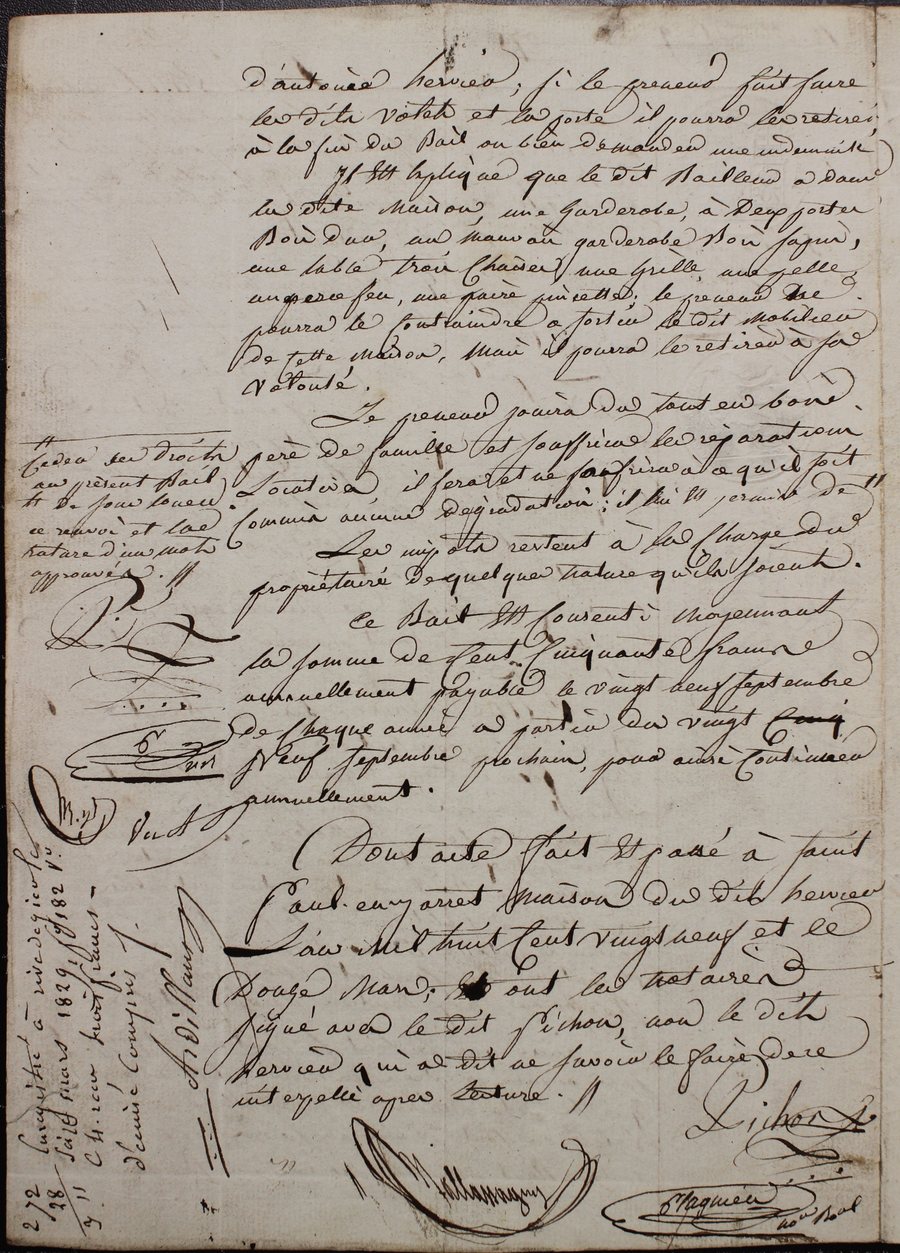 d'antoine hervieu; si le preneur fait faire
les dits volets et la porte il pourra les retirer
à la fin du Bail ou bien demander une indemnité
Il Est Expliqué que le dit Bailleur a dans
la dite Maison, une Garderobe, à Deux portes
Bois dur, un mauvais garderobe Bois sapin,
une table trois Chaises, une Grille, une pelle
un perce feu, une paire pincettes; le preneur Ne
pourra le Contraindre a sortir le dit Mobilier
de cette Maison, Mais il pourra le retirer à sa
Volonté.
Le preneur jouira du tout en bon
père de famille et souffrira les réparations
Locatives il fera et ne souffrira à ce qu'il soit
Commis aucune dégradation; il lui Est permis de #
Les impots restent à la Charge du
propriétaire de quelque nature qu'ils soient.
Ce Bail Est Consenti Moyennant
la somme de Cent Cinquante francs
annuellement payable le vingt neuf septembre
de Chaque année a partir du vingt Cinq
Neuf septembre prochain, pour ainsi Continuer
annuellement.
Dont acte fait Et passé à saint
Paul-en-jarret maison du dit hervieu
L'an Mil huit Cent vingt neuf et le
Douze Mars; Et ont les notaires
signé avec le dit Pichon, non le dit
hervieu qui a dit ne savoir le faire de ce
interpellé après Lecture. //
Pichon
# Ceder ses droits
au présent Bail
# De sous louer
ce renvoi et la
rature d'un mot
approuvés. //
P.
Enregistré à rivedegier le
seize mars 1829. f° 182 V°
C 4. reçu trois francs
dixieme Compris
Ardillan
272
28
3. 11